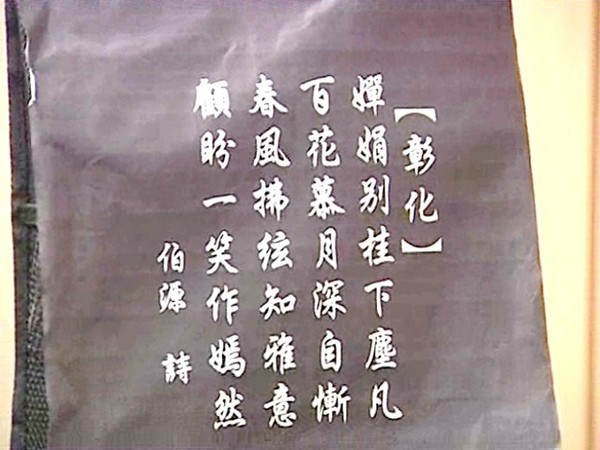 【彰化】
嬋娟別桂下塵凡
百花慕月深自慚
春風拂絃知雅意
顧盼一笑作嫣然
伯源 詩